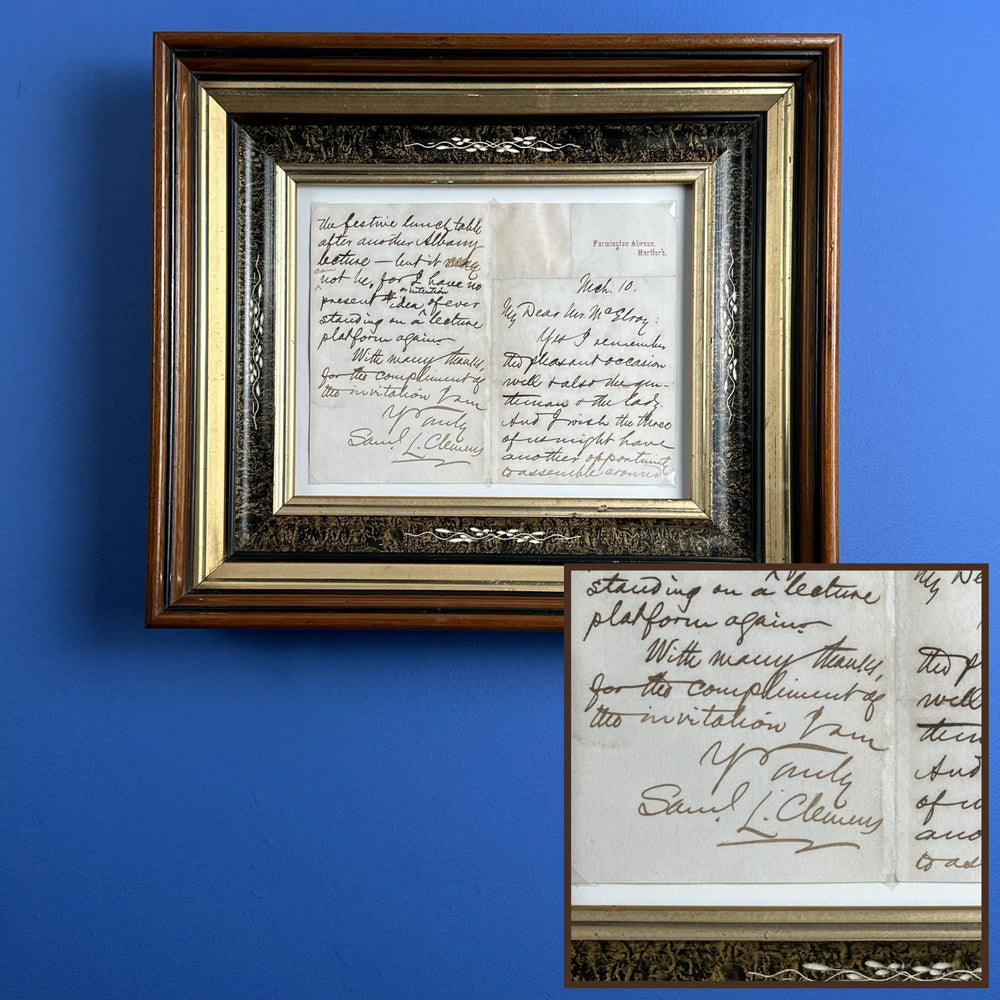 Farmington Avenue,
Hartford.
Mch. 10.
My Dear Mr. McElroy:
Yes I remember
the pleasant occasion
well & also the gen-
tleman & the lady.
And I wish the three
of us might have
another opportunity
to assemble around
the festive lunch table
after another Albany
lecture — but it may
can
not be, for I have no
or intention
present idea of ever
standing on a lecture
platform again.
With many thanks,
for the compliment of
the invitation I am
Truly
Saml. L. Clemens
standing on a lecture
platform again.
With many thanks,
for the compliment of
the invitation I am
Truly
Saml. L. Clemens
My De
the p
well
tlem
And
of u
ano
to as